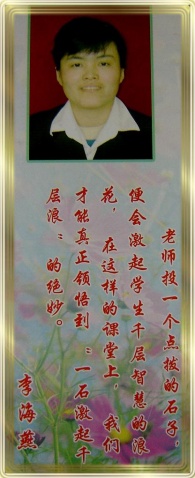 老师投一个点拨的石子，
便会激起学生千层智慧的浪
花，在这样的课堂上，我们
才能真正领悟到："一石激起千
层浪"的绝妙。
李海燕